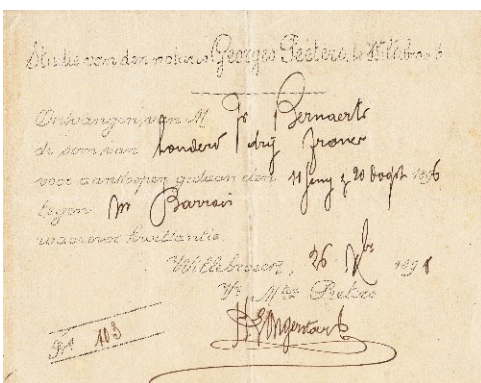 Studie van den notaris Georges Peeters, te Willebroeck
Ontvangen van M Fr Bernaerts
de som van honderd drij francs
voor aankoopen gedaan den 11 Juny & 20 Oogst 1896
tegen M Barrois
waarover kwittantie.
Willebroeck, 26 Xbr 189
Vr Mter Peeters
Fr 103